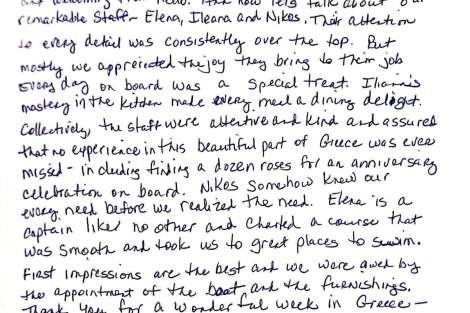 remarkable staff - Elena, Ileana and Nikos. Their attention
to every detail was consistently over the top. But
mostly we appreciated the joy they bring to their job
Every day on board was a special treat. Iliana's
mastery in the kitchen made every meal a dining delight.
Collectively, the staff were attentive and kind and assured
that no experience in this beautiful part of Greece was ever
missed - including finding a dozen roses for an anniversary
celebration on board. Nikos somehow knew our
every need before we realized the need. Elena is a
captain like no other and charted a course that
was smooth and took us to great places to swim.
First impressions are the best and we were awed by
the appointment of the boat and the furnishings.
Thank you for a wonderful week in Greece -